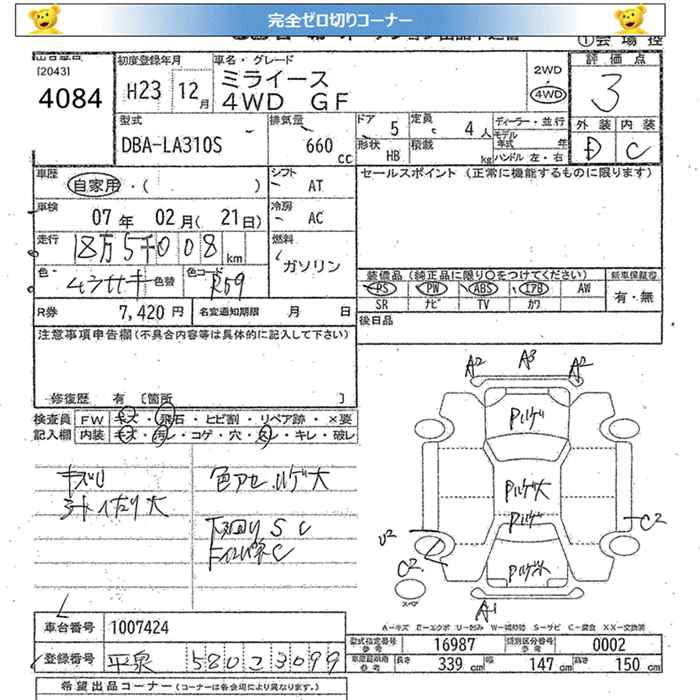 完全ゼロ切りコーナー
①会場控
[2043]
4084
初度登録年月
H23 12月
車名・グレード
ミライース
4WD GF
2WD
4WD
評価点
3
外装 内装
D C
型式
DBA-LA310S
排気量
660 cc
ドア 5
定員 4人
形状 HB
積載 kg
ディーラー・並行
モデル年式 年
ハンドル 左・右
車歴
自家用・( )
シフト
AT
セールスポイント (正常に機能するものに限ります)
車検
07年 02月( 21日)
冷房
AC
走行
18万5千008 km
燃料
ガソリン
色
色替
色コード
R59
装備品 (純正品に限り○をつけてください)
新車保証書
PS PW ABS エアB AW
有・無
SR ナビ TV カワ
R券 7,420円
名変通知期限 月 日
後日品
注意事項申告欄(不具合内容等は具体的に記入して下さい)
修復歴 有 〔箇所 〕
検査員 FW キズ・飛石・ヒビ割・リペア跡・×要
記入欄 内装 キズ・汚レ・コゲ・穴・スレ・キレ・破レ
キズU
シートへたり大
色アセ ハゲ大
下廻りSC
A2 A3 A2
ハゲ
ハゲ大
ハゲ
ハゲ大
U2
C2
C2
スペア
A1
A-キズ E-エクボ U-凹み W-補修跡 S-サビ C-腐食 XX-交換済
車台番号 1007424
登録番号 平泉 580 さ 3099
型式指定番号 参考 16987
類別区分番号 参考 0002
車検証明細 参考
長さ 339 cm
幅 147 cm
高さ 150 cm
希望出品コーナー(コーナーは各会場により異なります。)